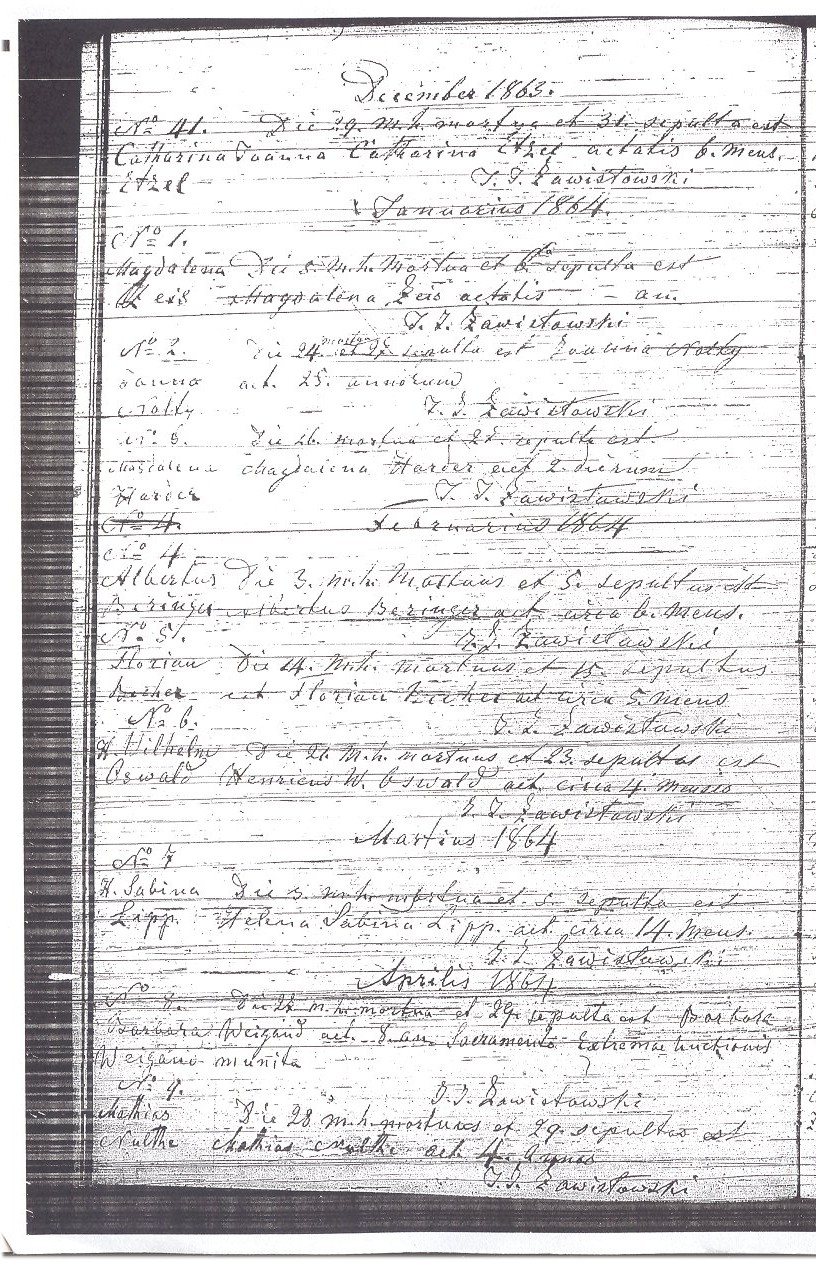 December 1863.
No 41. Die 29. m.h. mortua et 31. sepulta est
Catharina Joanna Catharina Etzel aetatis 6. mens.
Etzel J. J. Zawistowski
Januarius 1864.
No 1.
Magdalena Die 5. m.h. Mortua et 6ta sepulta est
Zeis Magdalena Zeis aetatis — an.
J. J. Zawistowski
No 2. Die 24. mortua et 27. sepulta est Joanna Nolty
Joanna aet. 25. annorum
Nolty — J. J. Zawistowski
No 3. Die 26. mortua et 27. sepulta est
Magdalena Magdalena Harder aet 2 dierum
Harder J. J. Zawistowski
No 4. Februarius 1864
No 4.
Albertus Die 3. m.h. Mortuus et 5. sepultus est
Beringer Albertus Beringer aet circa 6. Mens.
No 5. J. J. Zawistowski
Florian Die 14. m.h. mortuus et 15. sepultus
Becher est Florian Becher aet circa 5. mens
No 6. J. J. Zawistowski
H. Wilhelm Die 21 m.h. mortuus et 23. sepultus est
Oswald Henricus W. Oswald aet circa 4. mensis
J. J. Zawistowski
Martius 1864
No 7
H. Sabina Die 3 m.h. mortua et 5. sepulta est
Lipp. Helena Sabina Lipp. aet circa 14. Mens.
J. J. Zawistowski
Aprilis 1864
No 8. Die 27 m.h. mortua et 29. sepulta est Barbara
Barbara Weigand aet. 8 an. Sacramento Extremae Unctionis
Weigand munita
No 9. J. J. Zawistowski
Mathias Die 28 m.h. mortuus et 29. sepultus est
Nulthe Mathias Nulthe aet. 4. annos
J. J. Zawistowski